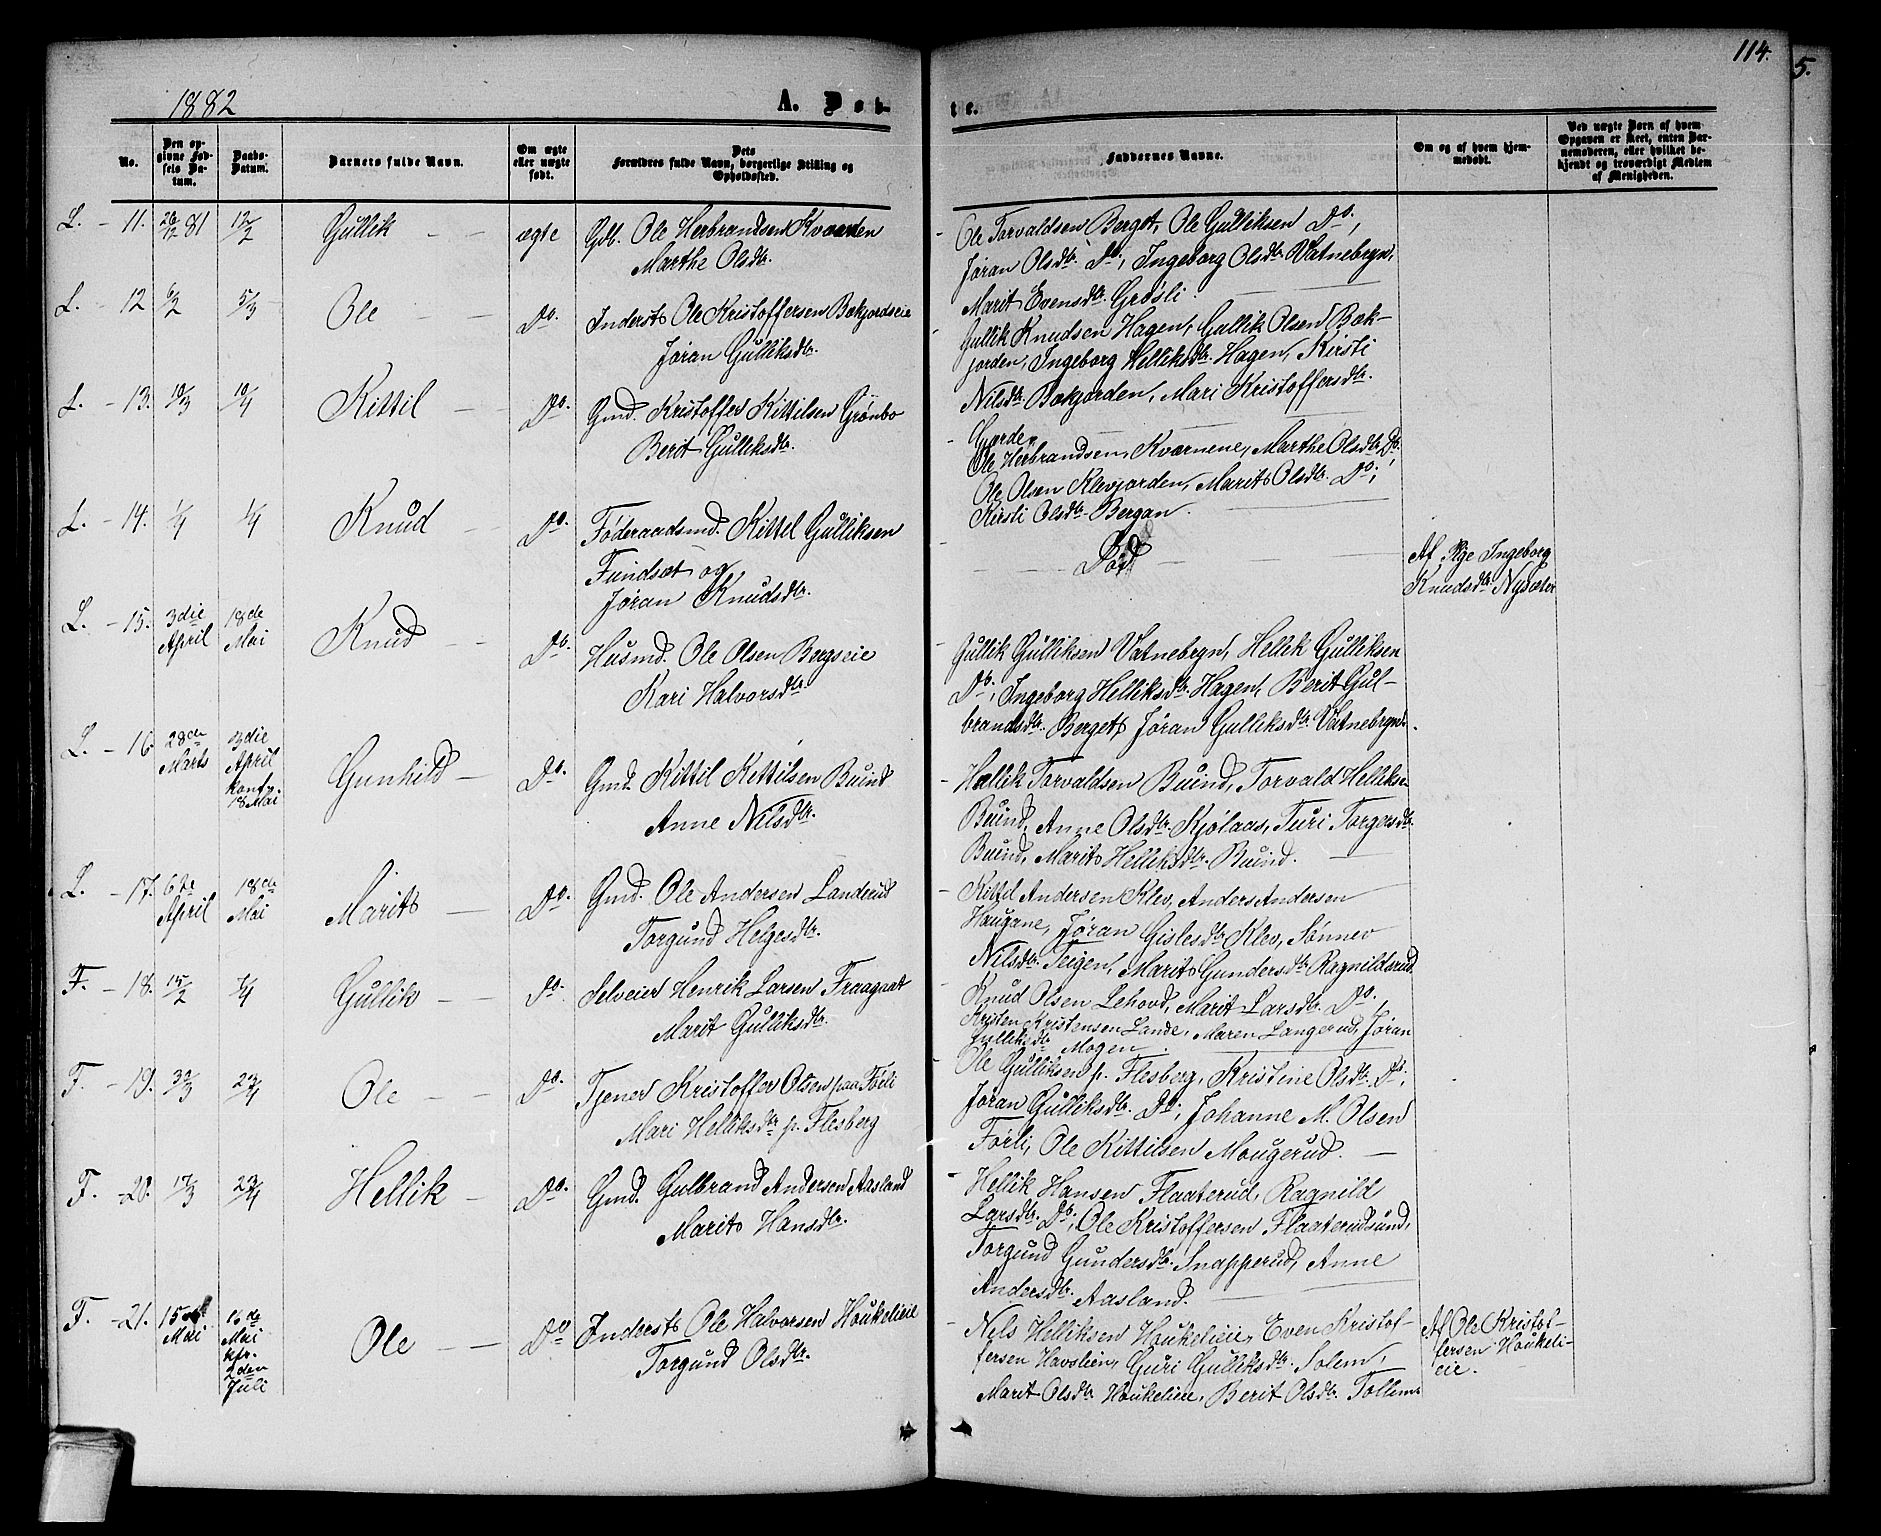 114.
5.
1882
A. Døb-
te.
No.
Den op-
givne Fød-
sels Da-
tum.
Daabs-
Datum.
Barnets fulde Navn.
Om ægte
eller uægte
født.
Dets
Forældres fulde Navn, borgerlige Stilling og
Opholdssted.
Faddernes Navne.
Om og af hvem hjem-
medøbt.
Ved uægte Børn af hvem
Opgaven er skeet, enten Bar-
nemoderen, eller hvilket be-
kjendt og troværdigt Medlem
af Menigheden.
L. - 11. 26/12 81 12/2 Gullik ægte Gdb. Ole Herbrandsen Kværnen
Marthe Olsdtr.
Ole Torvaldsen Berget, Ole Gulliksen Do.,
Jøran Olsdtr. Do., Ingeborg Olsdtr. Vatnebryn,
Marit Evensdtr. Grøsli.
L. - 12 6/2 5/3 Ole Do. Inderst Ole Kristoffersen Bækjordseie
Jøran Gulliksdtr.
Gullik Knudsen Hagen, Gullik Olsen Bæk-
jorden, Ingeborg Helliksdtr. Hagen, Kirsti
Nilsdtr. Bækjorden, Mari Kristoffersdtr.
Gjorden
L. - 13. 10/3 10/4 Kittil Do. Gmd. Kristoffer Kittilsen Grønbo
Berit Gulliksdtr.
Ole Herbrandsen, Kværnene, Marthe Olsdtr. Do.,
Ole Olsen Klevjorden, Marit Olsdtr. Do.,
Kirsti Olsdtr. Bergan.
L. - 14. 1/4 1/4 Knud Do. Føderaadsmd. Kittel Gulliksen
Fundsæt og
Jøran Knudsdtr.
Død
Af Pige Ingeborg
Knudsdtr. Nysæter
L. - 15. 3die
April
18de
Mai
Knud Do. Husmd. Ole Olsen Bergseie
Kari Halvorsdtr.
Gullik Gulliksen Vatnebryn, Hellik Gulliksen
Do., Ingeborg Helliksdtr. Hagen, Berit Gul-
brandsdtr. Berget, Jøran Gulliksdtr. Vatnebryn.
L. - 16 28de
Marts
3die
April
konf.
18 Mai
Gunhild Do. Gmd. Kittil Kettilsen Buind
Anne Nilsdtr.
Hellik Torvaldsen Buind, Torvald Helliksen
Buind, Anne Olsdtr. Kjølaas, Turi Torgersdtr.
Buind, Marit Helliksdtr. Buind.
L. - 17. 6te
April
18de
Mai
Marit Do. Gmd. Ole Andersen Landerud
Torgund Helgesdtr.
Kittil Andersen Klev, Anders Andersen
Haugane, Jøran Gislesdtr. Klev, Sønnev
Nilsdtr. Teigen, Marit Gundersdtr. Ragnildsrud.
F. - 18. 15/2 9/4 Gullik Do. Selveier Henrik Larsen Fraagaat
Marit Gulliksdtr.
Knud Olsen Lehovd, Marit Larsdtr. Do.,
Kristen Kristensen Lande, Maren Langerud, Jøran
Gulliksdtr. Mogen.
F. - 19. 30/3 23/4 Ole Do. Tjener Kristoffer Olsen paa Førli
Mari Helliksdtr. p. Flesberg
Ole Gulliksen p. Flesberg, Kristine Olsdtr. Do.,
Jøran Gulliksdtr. Do., Johanne M. Olsen
Førli, Ole Kittilsen Mougerud.
F. - 20. 17/3 23/4 Hellik Do. Gmd. Gulbrand Andersen Aasland
Marit Hansdtr.
Hellik Hansen Flaaterud, Ragnild
Larsdtr. Do., Ole Kristoffersen Flaaterudsund,
Torgund Gundersdtr. Snapperud, Anne
Andersdtr. Aasland.
F. - 21. 15de
Mai
16de
Mai
kfr.
2den
Juli
Ole Do Inderst Ole Halvorsen Houkelieie
Torgund Olsdtr.
Nels Helliksen Houkelieie, Even Kristof-
fersen Havslien, Guri Gulliksdtr. Solem,
Marit Olsdtr. Houkelieie, Berit Olsdtr. Tollems
Af Ole Kristof-
fersen Houkeli-
eie.